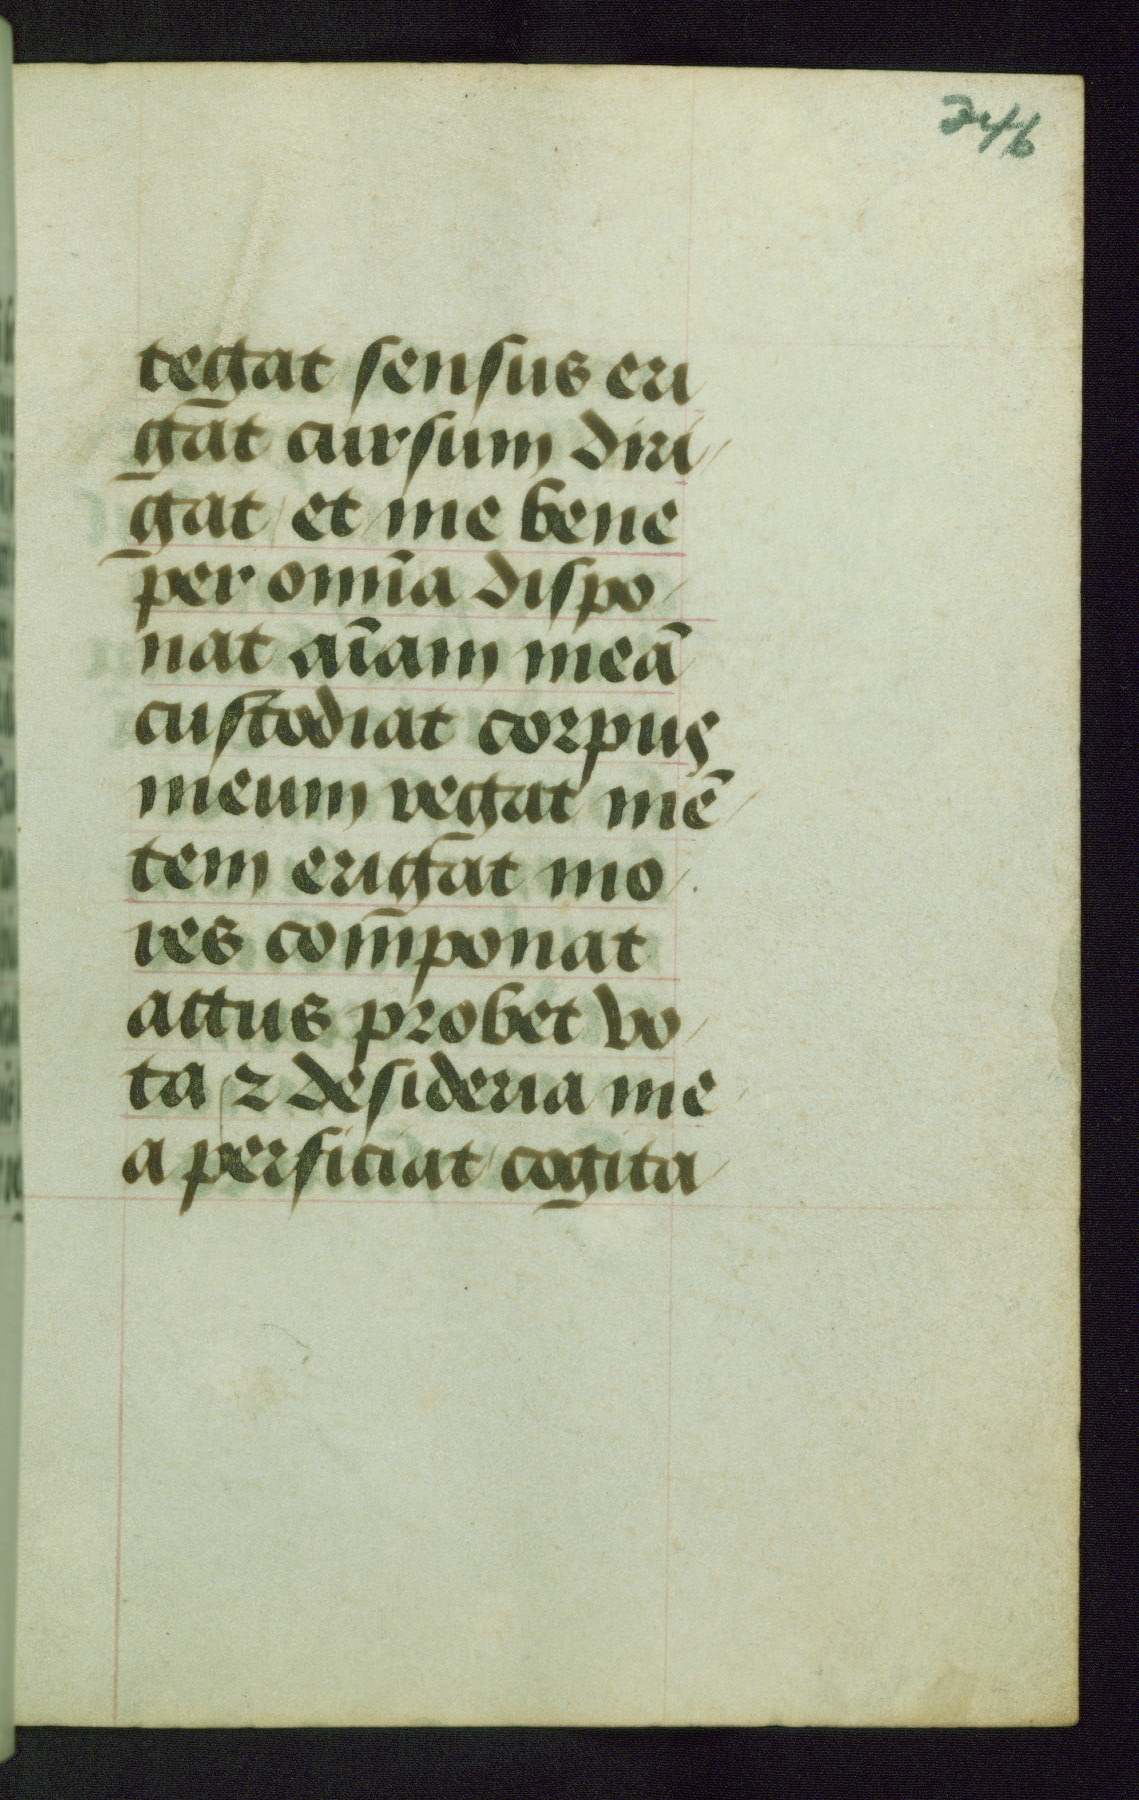 246
tegat sensus eri
gat cursum diri
gat et me bene
per omīa dispo
nat aīam meā
custodiat corpus
meum regat mē
tem erigat mo
res com̄ponat
actus probet vo
ta ⁊ desideria me
a perficiat cogita